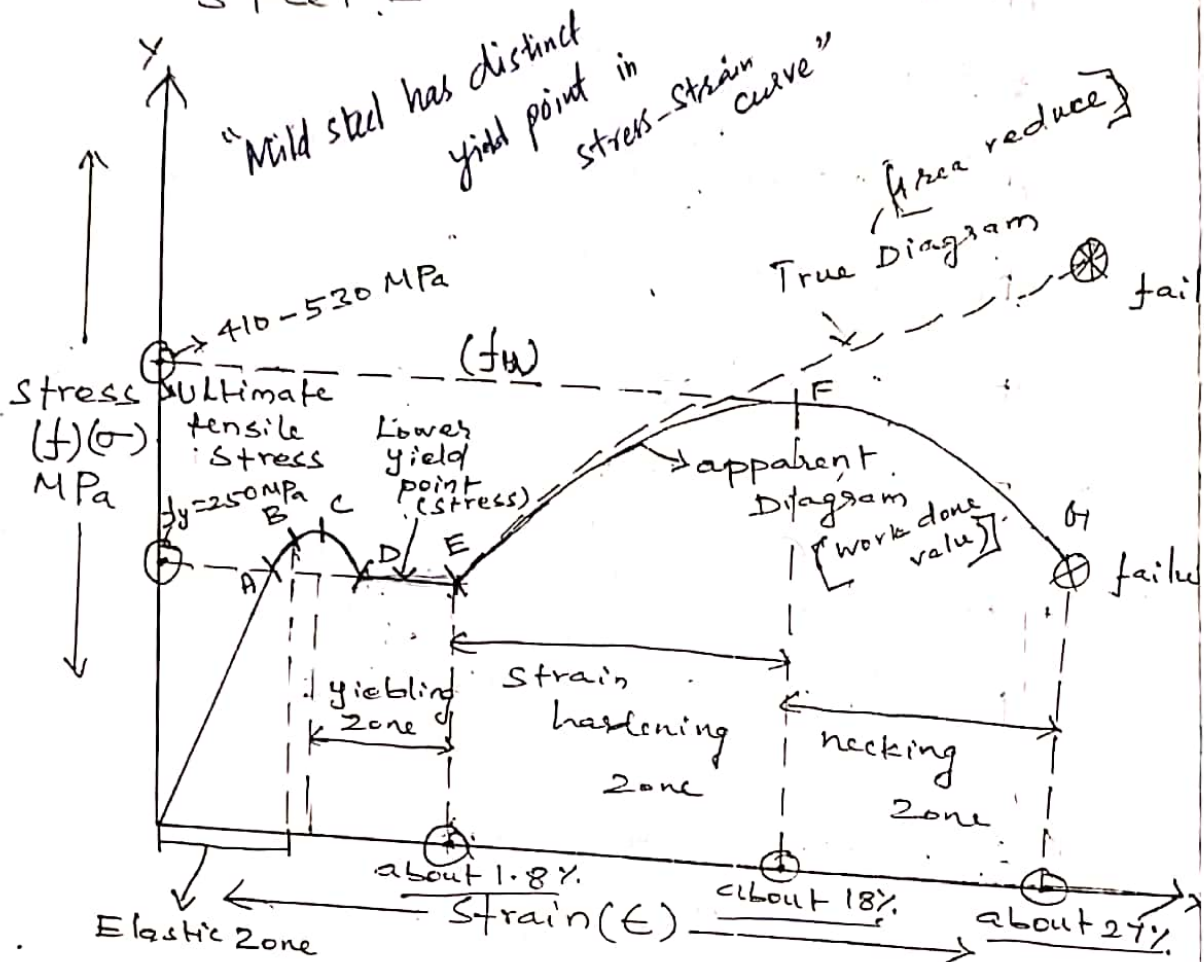 Y
"Mild steel has distinct
yield point in
stress-strain
curve"
[Area reduce]
True Diagram
fail
410-530 MPa
Stress
(f)(σ)
MPa
Ultimate
tensile
stress
fy=250MPa
Lower
yield
point
(stress)
A
B
C
D
E
F
G
apparent
Diagram
[work done
value]
failu
yielding
Zone
Strain
hardening
Zone
necking
Zone
about 1.8%
about 18%
about 27%
Strain (ε)
Elastic Zone